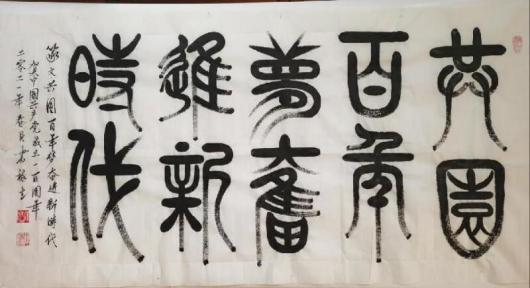 共圓
百年
夢奮
進新
時代
篆文共圆百年梦奋进新时代
中国共产党成立一百周年
二〇二一年春月